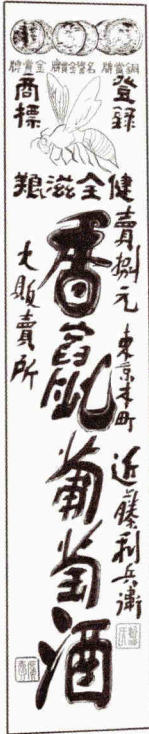 銅賞牌 名誉金賞牌 金賞牌
登録
商標
健全滋
賣捌元 東京本町 近藤利兵衛
香竄葡萄酒
大販賣所